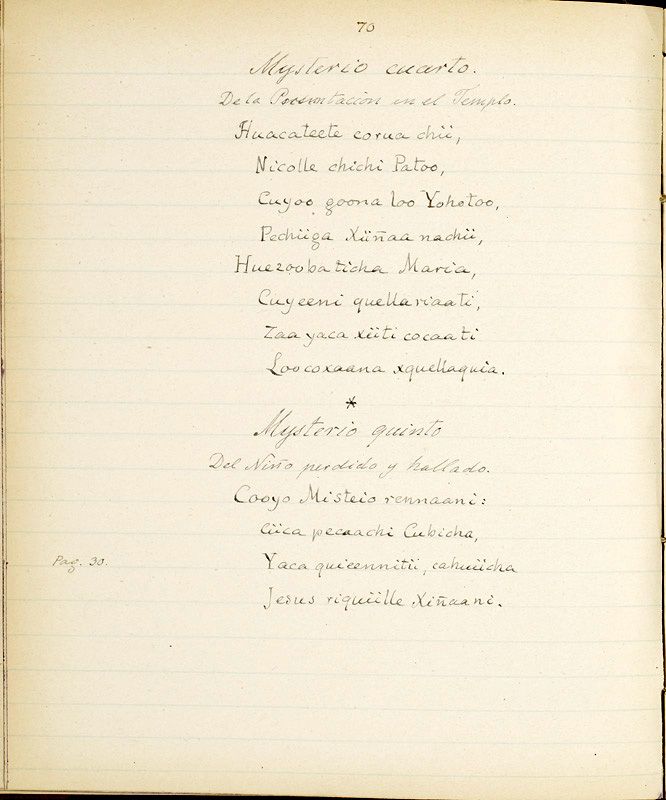 70
Mysterio cuarto.
De la Presentacion en el Templo.
Huacateete corua chii,
Nicolle chichi Patoo,
Cuyoo goona loo Yohotoo,
Pechiiga Xiiñaa nachii,
Huezooba ticha Maria,
Cuyeeni quellariaati,
Zaa yaca xiiti cocaati
Loocoxaana xquellaquia.
*
Mysterio quinto
Del Niño perdido y hallado.
Cooyo Misteio rennaani:
Ciica pecaachi Cubicha,
Pag. 30. Yaca quieennitii, cahuiicha
Jesus riquiille Xiñaani.